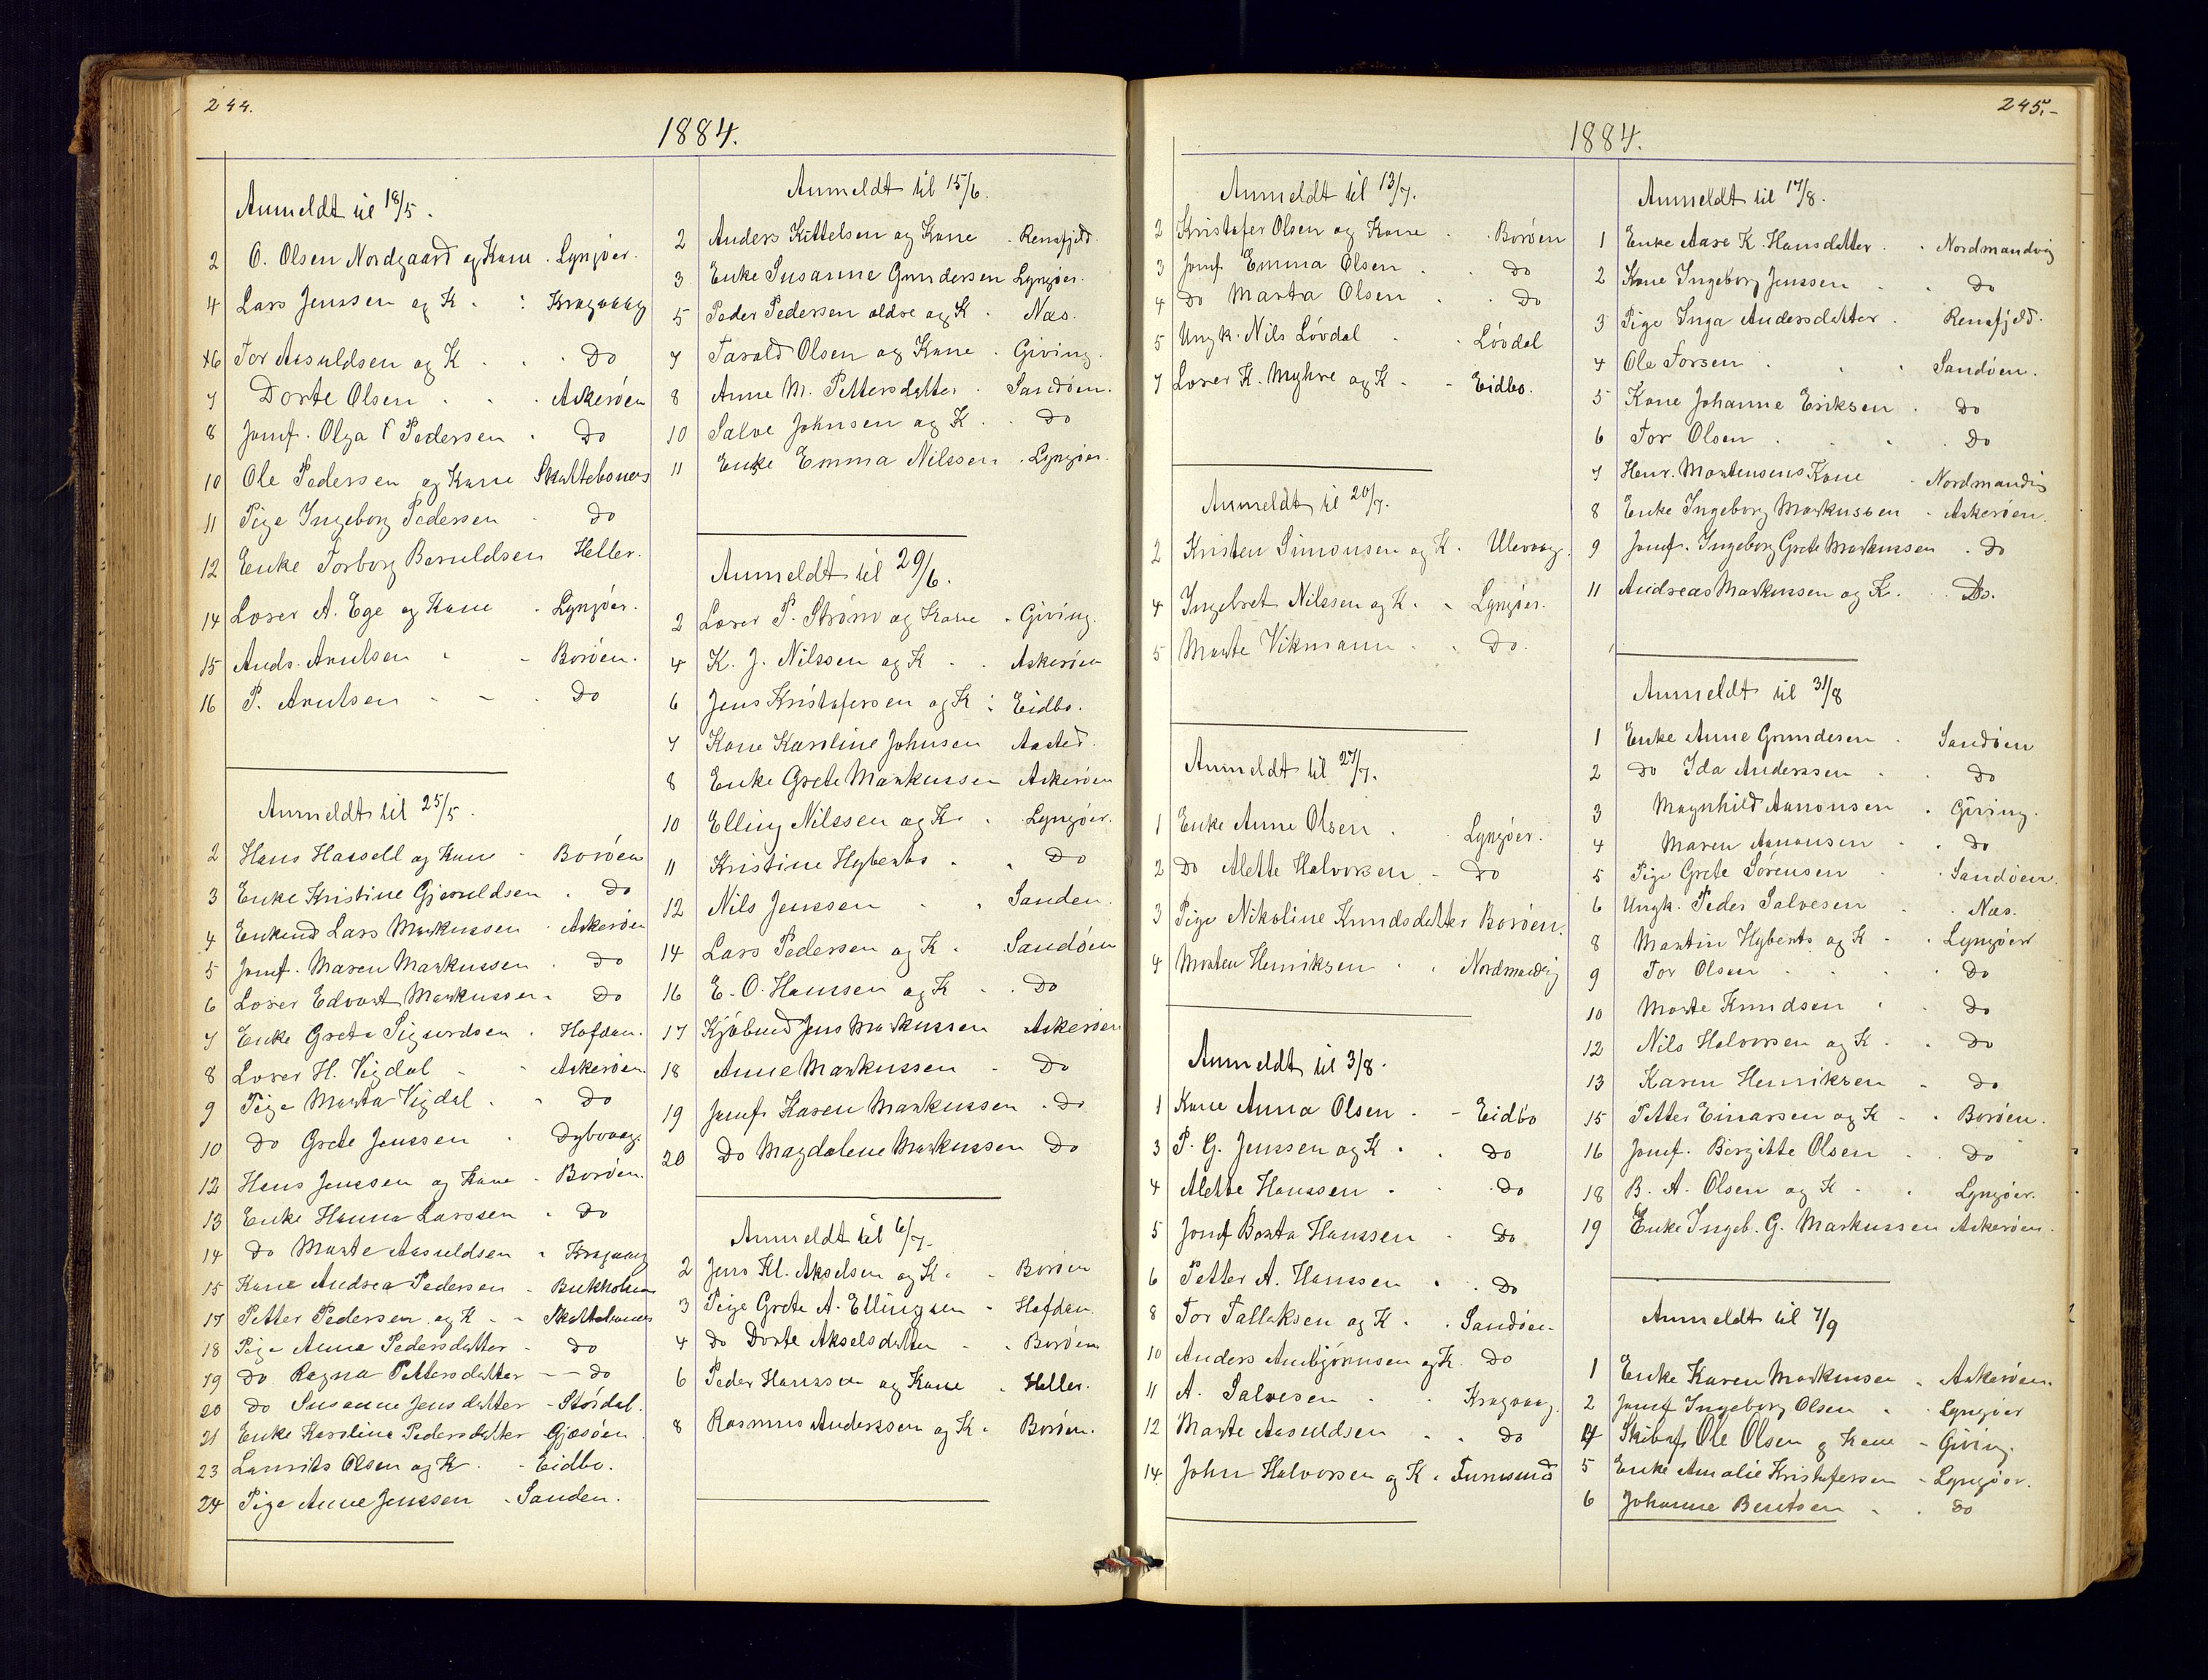 244.
1884.
Anmeldt til 18/5.
2 O. Olsen Nordgaard og Kone . Lyngøer.
4 Lars Jenssen og K. . Kragvaag
6 Tor Aasuldsen og K . . Do
7 Dorte Olsen . . . Askerøen
8 Jomf. Olga T Pedersen . Do
10 Ole Pedersen og Kone Skuttebones
11 Pige Ingeborg Pedersen . Do
12 Enke Torborg Beruldsen Heller.
14 Loser A. Ege og Kone . Lyngøer.
15 Ands. Arntsen . - Borøen.
16 P. Arntsen - - . Do
Anmeldt til 25/5.
2 Hans Hassell og Kone - Borøen
3 Enke Kristine Gjeruldsen . Do
4 Enkemd Lars Markussen . Askerøen
5 Jomf. Maren Markussen . Do
6 Loser Edvart Markussen . Do
7 Enke Grete Sigurdsen . Hofden.
8 Loser H. Vigdal - - Askerøen.
9 Pige Marta Vigdal . - Do
10 Do Grete Jenssen . Dybvaag.
12 Hans Jenssen og Kone - Borøen.
13 Enke Hanna Larssen . Do
14 Do Marte Aasuldsen - Kragvaag
15 Kone Andrea Pedersen - Bukholmen
17 Petter Pedersen og K - - Skuttebones
18 Pige Anna Pedersdatter - Do
19 Do Ragna Pettersdatter - - Do
20 Do Susanne Jensdatter - Stordal.
21 Enke Karoline Pedersdatter Gjæsøen
23 Laurits Olsen og K. - Eidbo.
24 Pige Anne Jenssen - Sanden.
Anmeldt til 15/6.
2 Anders Kittelsen og Kone . Rensfjeld.
3 Enke Susanne Gundersen Lyngøer.
5 Peder Pedersen ældre og K . Næs.
7 Tarald Olsen og Kone . Giving.
8 Anne M. Pettersdatter . Sandøen.
10 Salve Johnsen og K . . Do
11 Enke Emma Nilssen . Lyngøer.
Anmeldt til 29/6.
2 Loser P. Strøm og Kone - Giving.
4 K. J. Nilssen og K - . Askerøen
6 Jens Kristofersen og K : Eidbo.
7 Kone Karoline Johnsen Aasted.
8 Enke Grete Markussen Askerøen
10 Elling Nilssen og K. . Lyngøer.
11 Kristine Hyberts . . Do
12 Nils Jenssen . . Sanden.
14 Lars Pedersen og K . Sandøen
16 E. O. Hanssen og K - . Do
17 Kjøbmd Jens Markussen Askerøen
18 Anne Markussen - Do
19 Jomfr Karen Markussen . Do
20 Do Magdalene Markussen Do
Anmeldt til 6/7.
2 Jens Kl. Akselsen og K. - Borøen
3 Pige Grete A. Ellingsen - Hofden.
4 Do Dorte Akselsdatter - . Borøen
6 Peder Hanssen og Kone . Heller.
8 Rasmus Anderssen og K. Borøen.
245.-
1884.
Anmeldt til 13/7.
2 Kristofer Olsen og Kone . . Borøen
3 Jomf. Emma Olsen . . Do
4 Do Marta Olsen . . Do
5 Ungk. Nils Løvdal . . Løvdal
7 Loser K. Myhre og K. - - Eidbo.
Anmeldt til 20/7.
2 Kristen Simonsen og K. Ulevaag.
4 Ingebret Nilssen og K. - Lyngøer.
5 Marte Vikmann . . Do.
Anmeldt til 27/7.
1 Enke Anne Olsen . . Lyngøer.
2 Do Alette Halvorsen - Do
3 Pige Nikoline Knudsdatter Borøen.
4 Morten Henriksen . . Nordmandvig
Anmeldt til 3/8.
1 Kone Anna Olsen . - Eidbo
3 P. G. Jenssen og K . . Do
4 Alette Hanssen . . Do
5 Jomf Berta Hanssen . Do
6 Petter A. Hanssen . . Do
8 Tor Tallaksen og K . . Sandøen.
10 Anders Anbjørnsen og K. Do
11 A. Salvesen . . Kragvaag.
12 Marte Aasuldsen . . Do
14. John Halvorsen og K . Furusund
Anmeldt til 17/8.
1 Enke Aase K. Hansdatter . . Nordmandvig
2 Kone Ingeborg Jenssen . . Do
3 Pige Inga Andersdatter . Rensfjeld.
4 Ole Torsen . . . Sandøen.
5 Kone Johanne Eriksen . Do
6 Tor Olsen . . . Do
7 Henr. Mortensens Kone . Nordmandvig
8 Enke Ingeborg Markussen . Askerøen.
9 Jomf. Ingeborg Grete Markussen . Do
11 Andreas Markussen og K. . Do.
Anmeldt til 31/8
1 Enke Anne Gundersen . Sandøen
2 Do Ida Anderssen . . Do
3 Magnhild Aanonsen . Giving.
4 Maren Aanonsen . . Do
5 Pige Grete Sørensen . . Sandøen.
6 Ungk. Peder Salvesen . . Næs.
8 Martin Hyberts og K . . Lyngøer
9 Tor Olsen . . . . Do
10 Marte Knudsen . . Do
12 Nils Halvorsen og K . . Do
13 Karen Henriksen - Do
15 Petter Einarsen og K - . Borøen.
16 Jomf. Birgitte Olsen . . Do
18 B. A. Olsen og K . . Lyngøer.
19 Enke Ingeb. G. Markussen Askerøen.
Anmeldt til 7/9
1 Enke Karen Markussen . Askerøen.
2 Jomf Ingeborg Olsen . . Lyngøer
4 Skibsf. Ole Olsen og Kone - Giving.
5 Enke Amalie Kristofersen - Lyngøer.
6 Johanne Bentsen . . Do